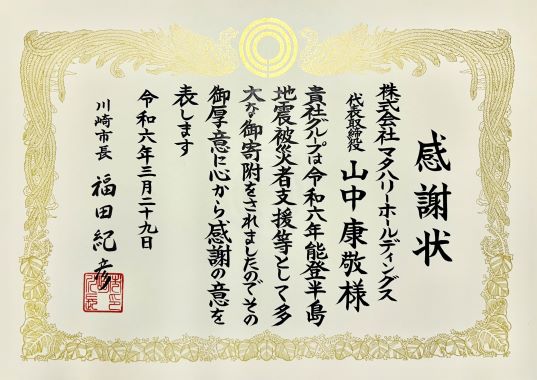 感謝状
株式会社マタハリーホールディングス
代表取締役 山中康敬様
貴社グループは令和六年能登半島
地震被災者支援等として多
大な御寄附をされましたのでその
御厚意に心から感謝の意を
表します
令和六年三月二十九日
川崎市長 福田紀彦